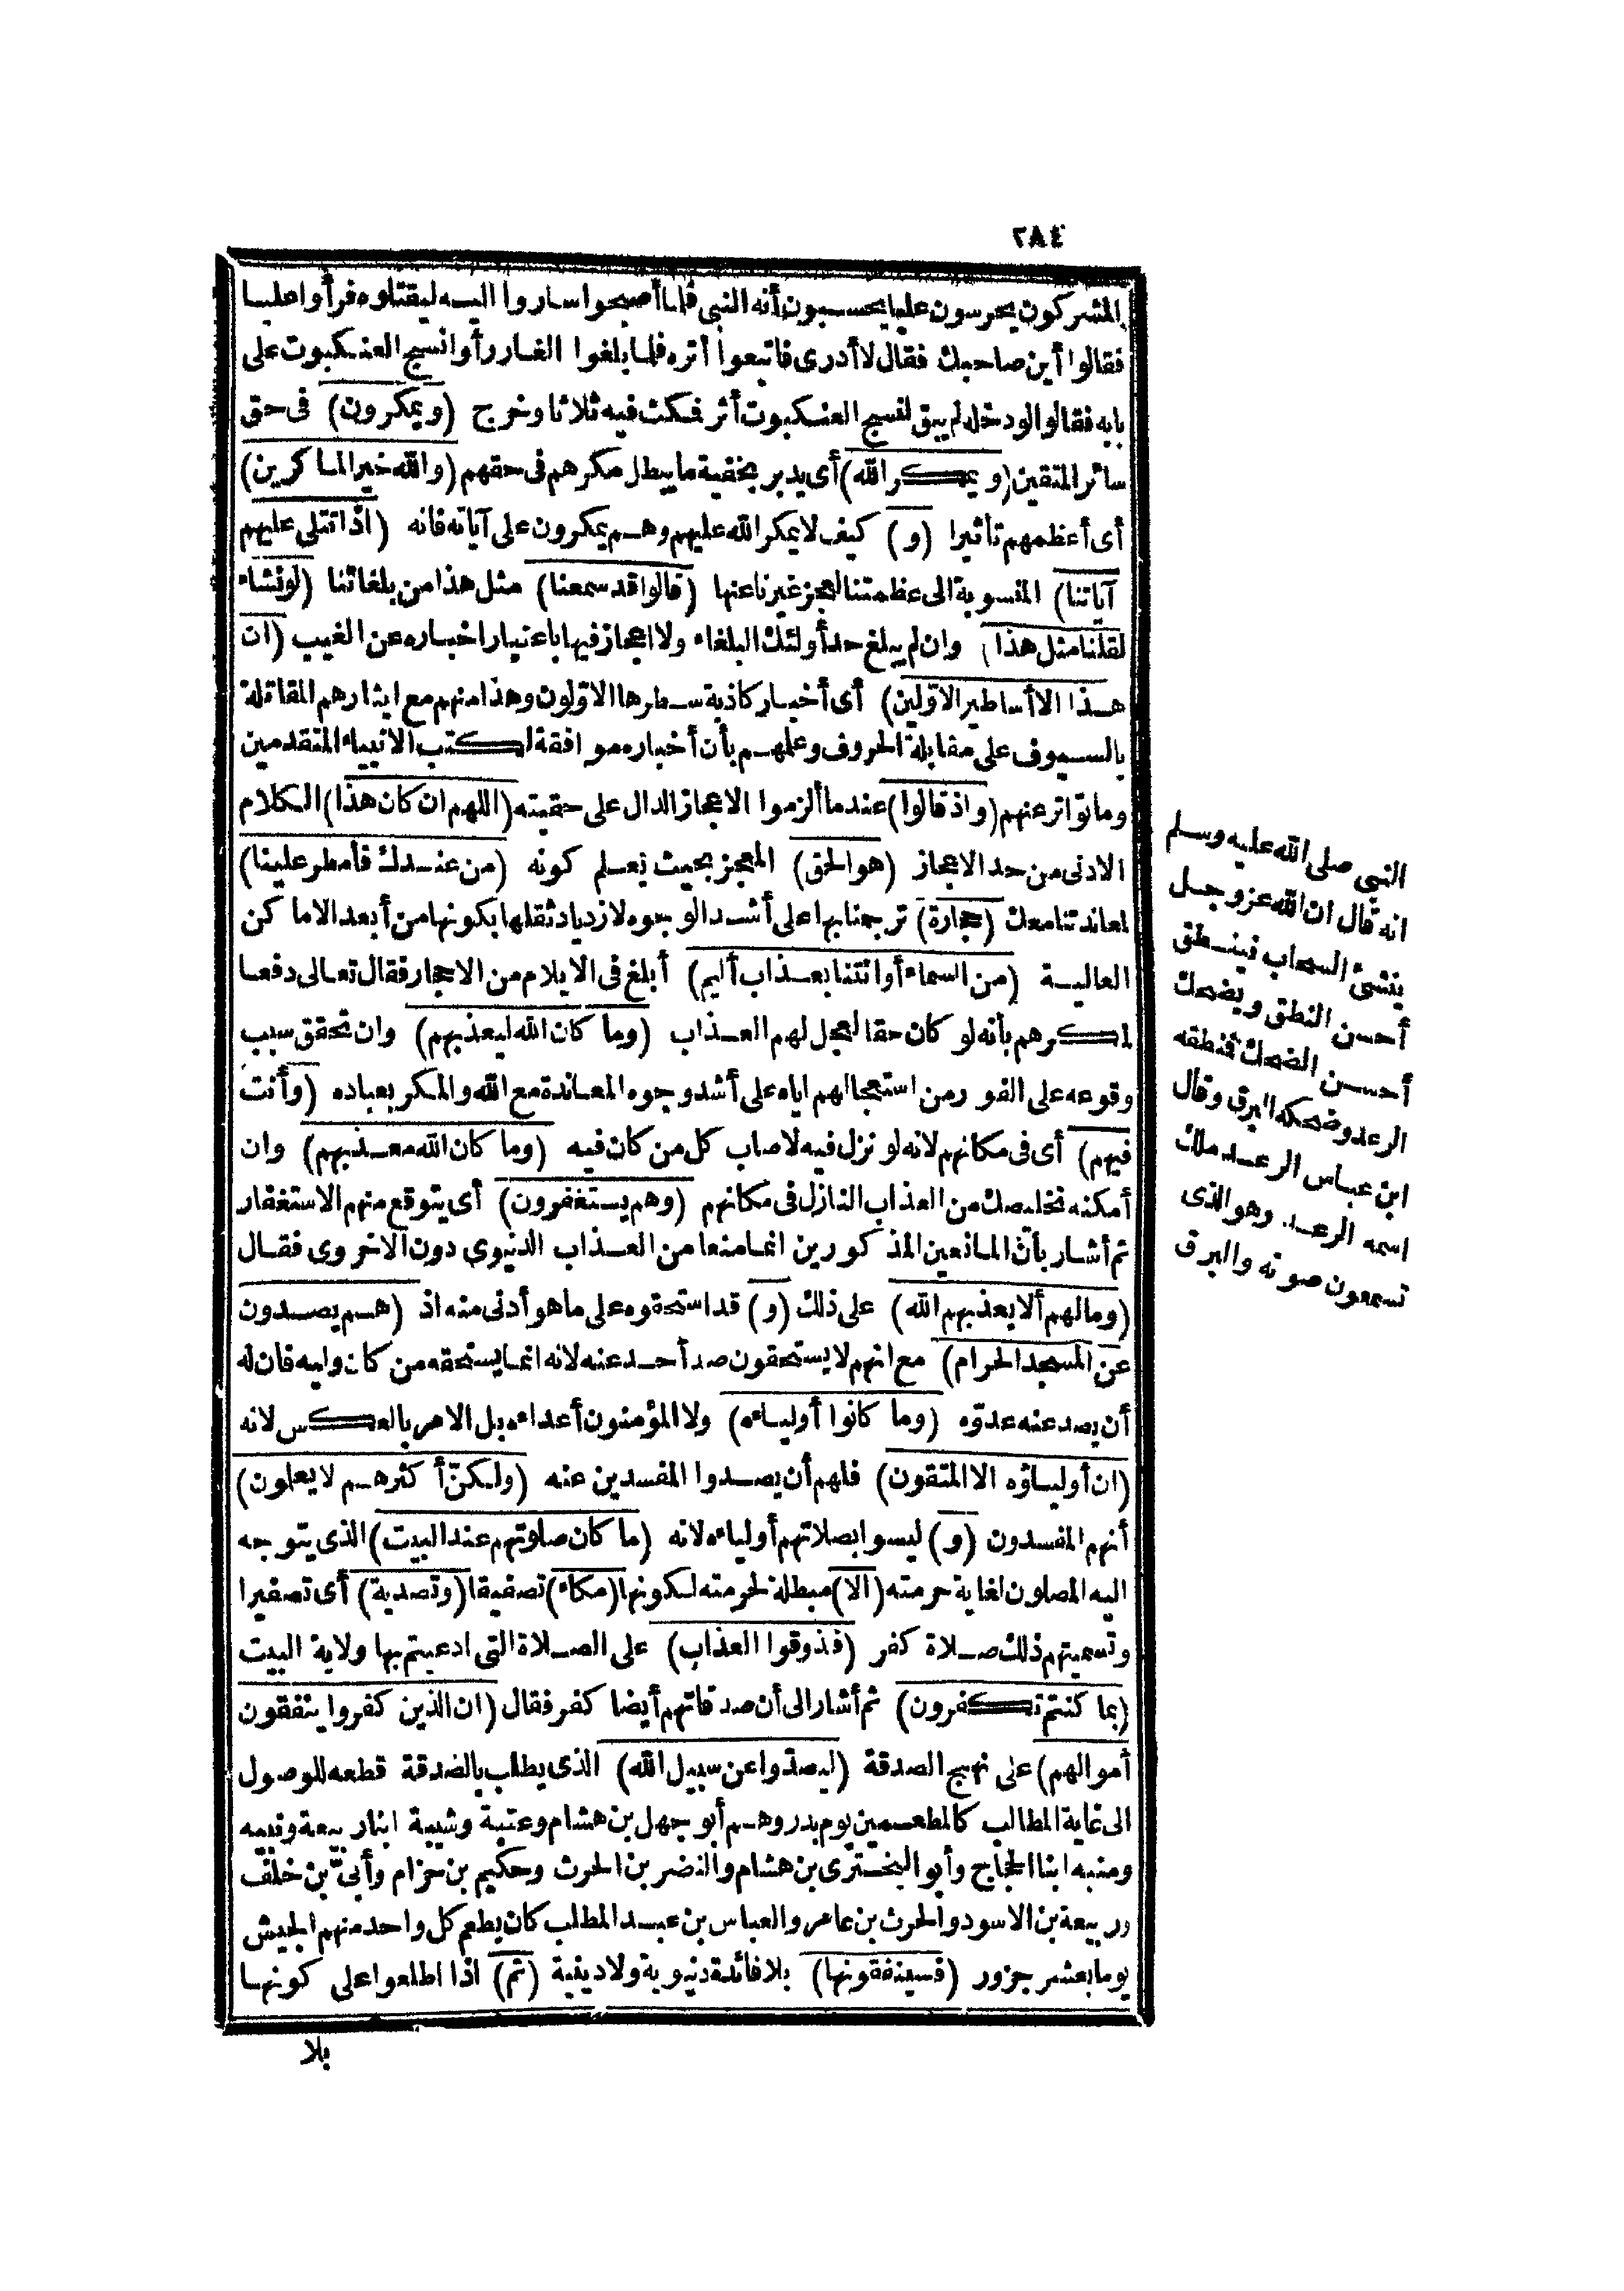 ٢٨٤
المشركون يحرسون عليا يحسبون أنه النبي فلما أصبحوا ساروا اليه ليقتلوه فرأوا عليا
فقالوا أين صاحبك فقال لا أدرى فاتبعوا أثره فلما بلغوا الغار رأوا نسج العنكبوت على
بابه فقالوا لو دخله لم يبق لنسج العنكبوت أثر فمكث فيه ثلاثا وخرج (ويمكرون) فى حق
سائر المتقين (ويمكر الله) أى يدبر بخفية ما يبطل مكرهم فى حقهم (والله خير الماكرين)
أى أعظمهم تأثيرا (و) كيف لا يمكر الله عليهم وهم يمكرون على آياته فانه (اذا تتلى عليهم
آياتنا) المنسوبة الى عظمتنا لعجز غيرنا عنها (قالوا قد سمعنا) مثل هذا من بلغائنا (لو نشاء
لقلنا مثل هذا) وان لم يبلغ حد أولئك البلغاء ولا اعجاز فيها باعتبار اخباره عن الغيب (ان
هذا الا أساطير الاوّلين) أى أخبار كاذبة سطرها الاوّلون وهذا منهم مع ايثارهم المقاتلة
بالسيوف على مقابلة الحروف وعلمهم بأن أخباره موافقة لكتب الانبياء المتقدمين
وما تواتر عنهم (واذ قالوا) عندما ألزموا الاعجاز الدال على حقيته (اللهم ان كان هذا) الكلام
الادنى من حد الاعجاز (هو الحق) المعجز بحيث نعلم كونه (من عندك فأمطر علينا)
لمعاندتنا معك (حجارة) ترجمنا بها على أشد الوجوه لازدياد ثقلها بكونها من أبعد الاماكن
العالية (من السماء أو ائتنا بعذاب أليم) أبلغ فى الايلام من الاحجار فقال تعالى دفعا
لمكرهم بأنه لو كان حقا لعجل لهم العذاب (وما كان الله ليعذبهم) وان تحقق سبب
وقوعه على الفور من استعجالهم اياه على أشد وجوه المعاندة مع الله والمكر بعباده (وأنت
فيهم) أى فى مكانهم لانه لو نزل فيه لاصاب كل من كان فيه (وما كان الله معذبهم) وان
أمكنه تخليصك من العذاب النازل فى مكانهم (وهم يستغفرون) أى يتوقع منهم الاستغفار
ثم أشار بأنّ المانعين المذكورين انما منعا من العذاب الدنيوى دون الاخروى فقال
(وما لهم ألا يعذبهم الله) على ذلك (و) قد استحقوه على ما هو أدنى منه اذ (هم يصدون
عن المسجد الحرام) مع انهم لا يستحقون صد أحد عنه لانه انما يستحقه من كان وليه فان له
أن يصد عنه عدوّه (وما كانوا أولياءه) ولا المؤمنون أعداءه بل الامر بالعكس لانه
(ان أولياؤه الا المتقون) فلهم أن يصدوا المفسدين عنه (ولكنّ أكثرهم لا يعلمون)
أنهم المفسدون (و) ليسوا بصلاتهم أولياءه لانه (ما كان صلوتهم عند البيت) الذى يتوجه
اليه المصلون لغاية حرمته (الا) مبطلة لحرمته لكونها (مكاء) تصفيقا (وتصدية) أى تصفيرا
وتسميتهم ذلك صلاة كفر (فذوقوا العذاب) على الصلاة التى ادعيتم بها ولاية البيت
(بما كنتم تكفرون) ثم أشار الى أن صدقاتهم أيضا كفر فقال (ان الذين كفروا ينفقون
أموالهم) على نهج الصدقة (ليصدّوا عن سبيل الله) الذى يطلب بالصدقة قطعه للوصول
الى غاية المطالب كالمطعمين يوم بدر وهم أبو جهل بن هشام وعتبة وشيبة ابنا ربيعة ونبيه
ومنبه ابنا الحجاج وأبو البخترى بن هشام والنضر بن الحرث وحكيم بن حزام وأبىّ بن خلف
وربيعة بن الاسود والحرث بن عامر والعباس بن عبد المطلب كان يطعم كل واحد منهم الجيش
يوما بعشر جزور (فسينفقونها) بلا فائدة دنيوية ولا دينية (ثم) اذا اطلعوا على كونها
بلا
النبى صلى الله عليه وسلم
انه قال ان الله عز وجل
ينشئ السحاب فينطق
أحسن النطق ويضحك
أحسن الضحك فنطقه
الرعد وضحكه البرق وقال
ابن عباس الرعد ملك
اسمه الرعد وهو الذى
تسمعون صوته والبرق